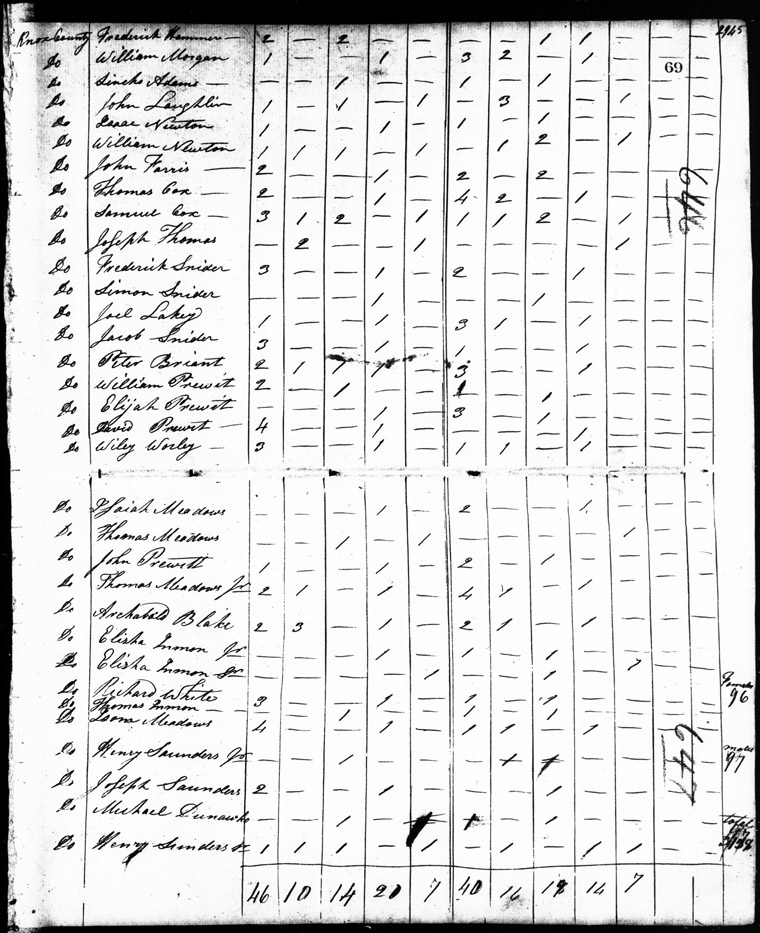 Knox County Frederick Hemmer — 2 — 2 — — — — 1 1 — — — 2945
Do William Morgan 1 — — 1 — 3 2 — 1 — — —
69
Do Adams — — — 1 — — 1 — 1 — — — —
Do John Laughlin 1 — 1 — 1 — 3 — — 1 — —
Do Isaac Newton 1 — — 1 — 1 — 1 — — — —
Do William Newton 1 1 1 — 1 — 1 2 — 1 — —
Do John Farris — 2 — — 1 — 2 — 2 — — — —
Do Thomas Cox — 2 — — 1 — 4 2 — 1 — — —
646
Do Samuel Cox — 3 1 2 — 1 1 1 2 — 1 — —
Do Joseph Thomas — 2 — — 1 — — — — 1 — —
Do Frederick Snider 3 — — 1 — 2 — — 1 — — —
Do Simon Snider — — — 1 — — — 1 — — — —
Do Joel Lakey 1 — — 1 — 3 1 — 1 — — —
Do Jacob Snider 3 — — 1 — 1 — — 1 — — —
Do Peter Briant 2 1 1 1 — 3 — — 1 — — —
Do William Prewit 2 — 1 — — 1 — 1 — — — —
Do Elijah Prewit — — — 1 — 3 — 1 — — — —
Do David Prewit — 4 — — 1 — — — — 1 — — —
Do Wiley Worley — 3 — — 1 — 1 1 — 1 — — —
Do Isaiah Meadows — — — 1 — 2 — — 1 — — —
Do Thomas Meadows — — 1 — 1 — — — — 1 — —
Do John Prewitt 1 — — 1 — 2 — 1 — — — —
Do Thomas Meadows Jr 2 1 — 1 — 4 1 — 1 — — —
Do Archabald Blake 2 3 — 1 — 2 1 — 1 — — —
Do Elisha Inmon Jr — — — 1 — 1 — 1 — — — —
Do Elisha Inmon Sr — — — — 1 — — 1 — 1 — —
Do Richard White 3 — — 1 — 1 — 1 — — — —
Females
96
Do Thomas Inmon — — — 1 — — 1 — 1 — — — —
Do Meadows 4 — — 1 — 1 1 — 1 — — —
647
Do Henry Saunders Jr — — 1 — — — 1 1 — — — —
males
97
Do Joseph Saunders 2 — — 1 — — — 1 — — — —
Do Michael — — 1 — 1 — 1 — — — —
total
Do Henry Sunders Sr 1 1 1 — 1 — 1 — 1 1 — —
46 10 14 20 7 40 16 19 14 7